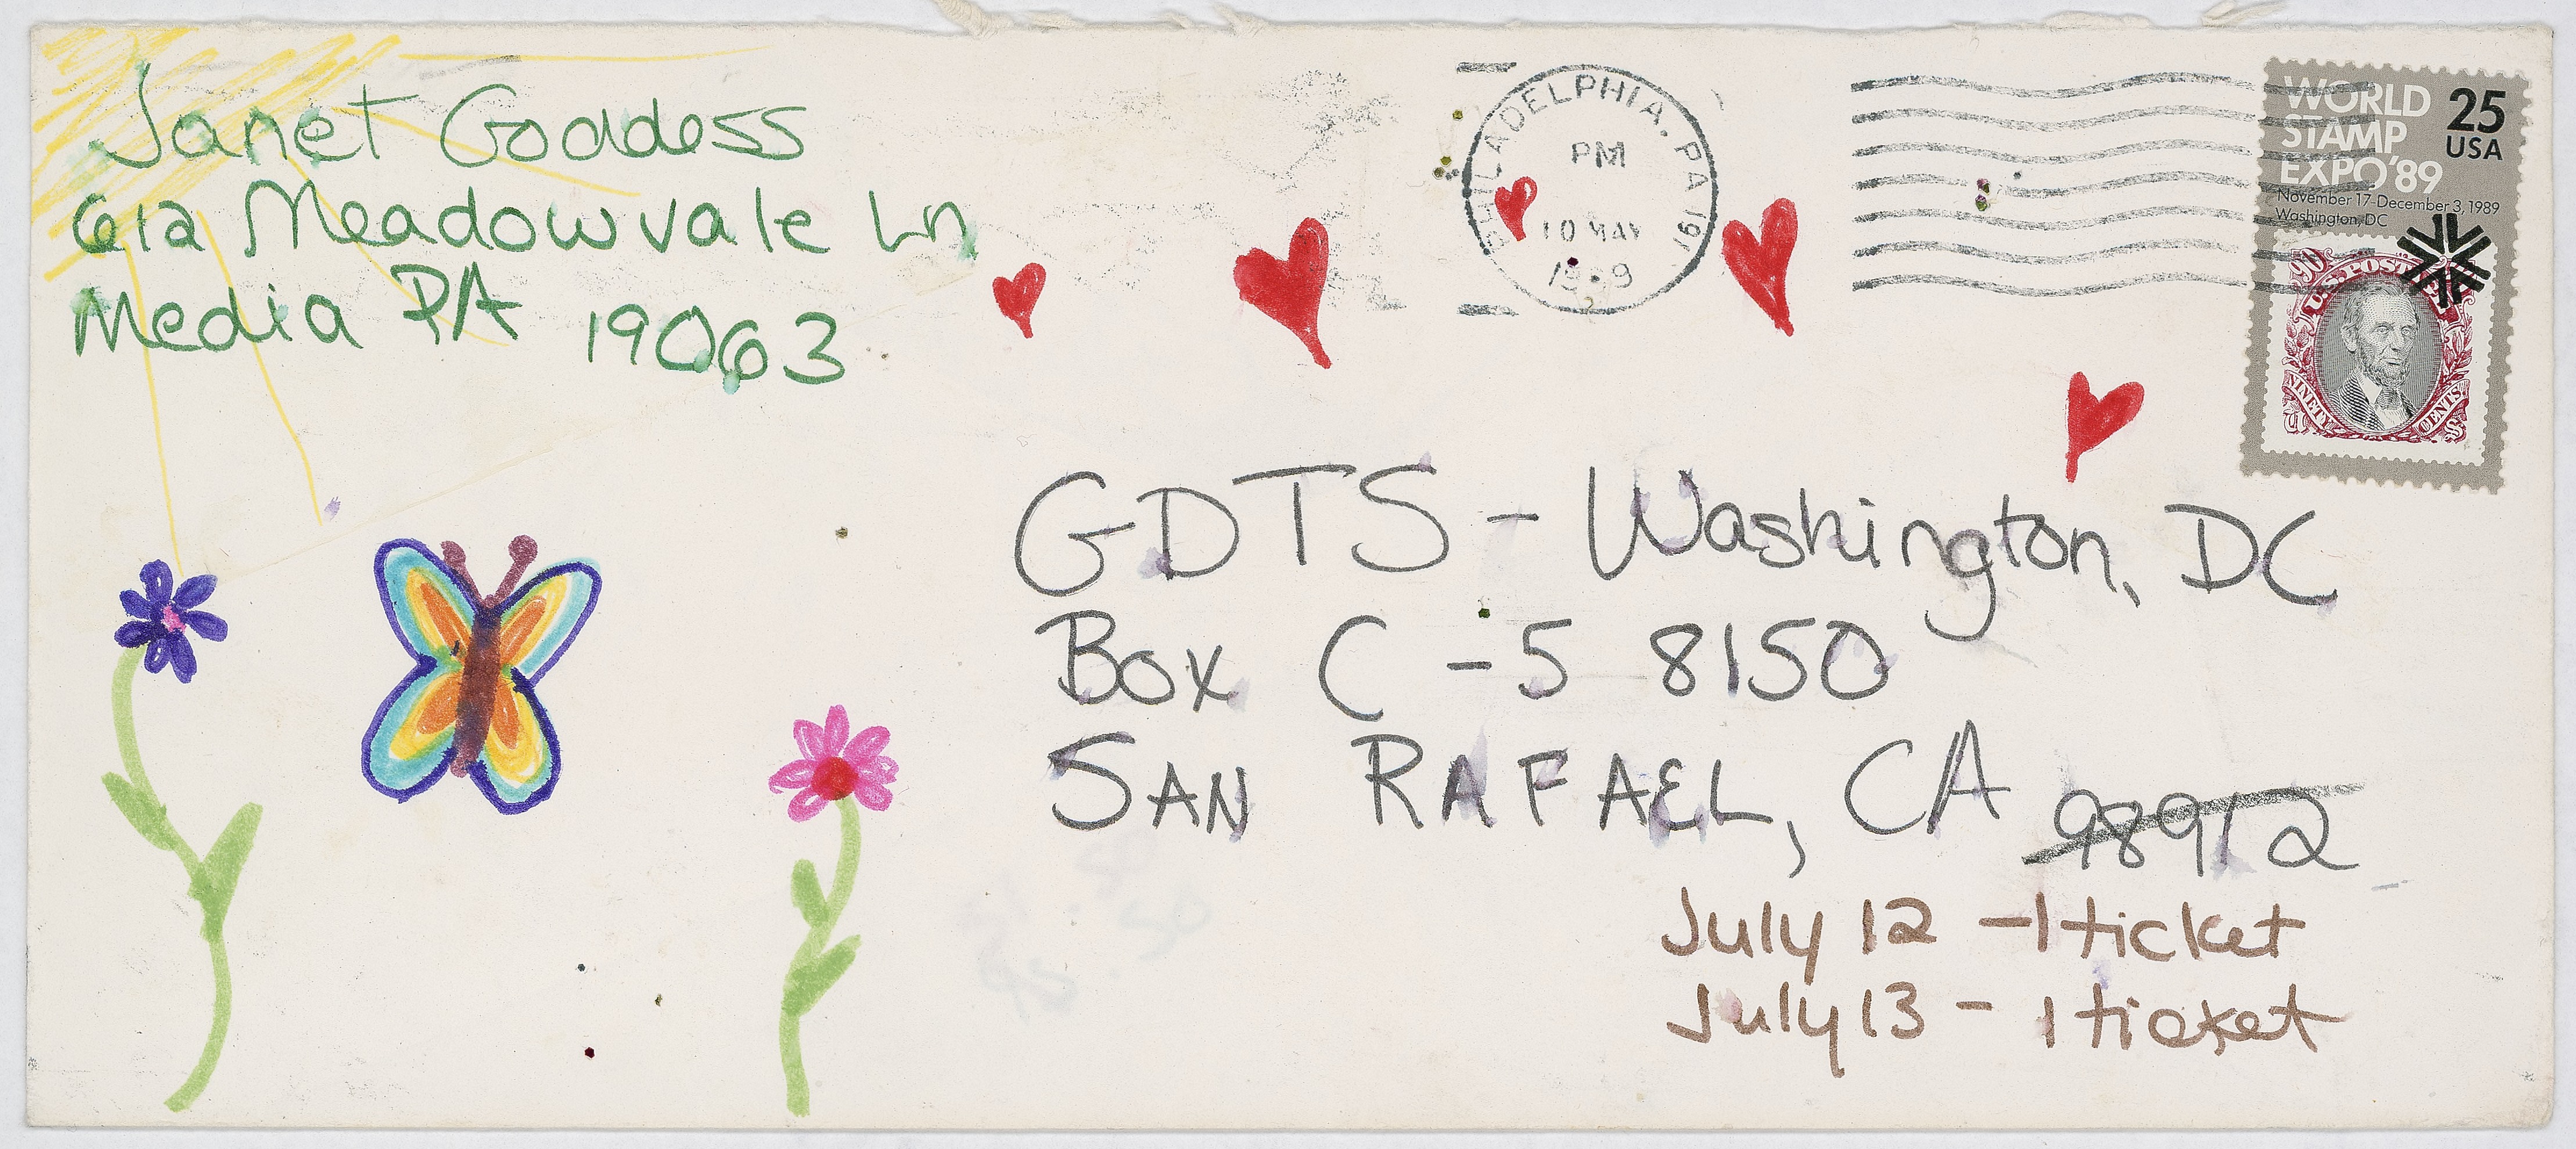 Janet Goddess
612 Meadowvale Ln
Media PA 19063
PHILADELPHIA, PA 191
PM
10 MAY
WORLD
STAMP
EXPO'89
25
USA
November 17-December 3, 1989
Washington, DC
90
U.S. POSTAGE
NINETY CENTS
GDTS - Washington, DC
Box C -5 8150
SAN RAFAEL, CA 98912
July 12 - 1 ticket
July 13 - 1 ticket